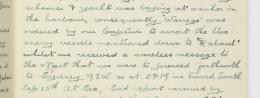 schooner & yacht was laying at anchor in
the harbour, consequently "Warrego" was
ordered by our Captain to escort the two
enemy vessels mentioned down to "Rabaul"
whilst we received a wireless message to
the effect that we were to proceed forthwith
to Sydney N.S.W. so at 2 P.M we turned South
Sep 15th At Sea, Said report received by